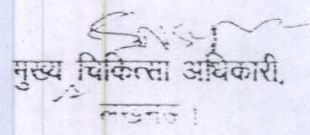 मुख्य चिकित्सा अधिकारी,
लखनऊ ।